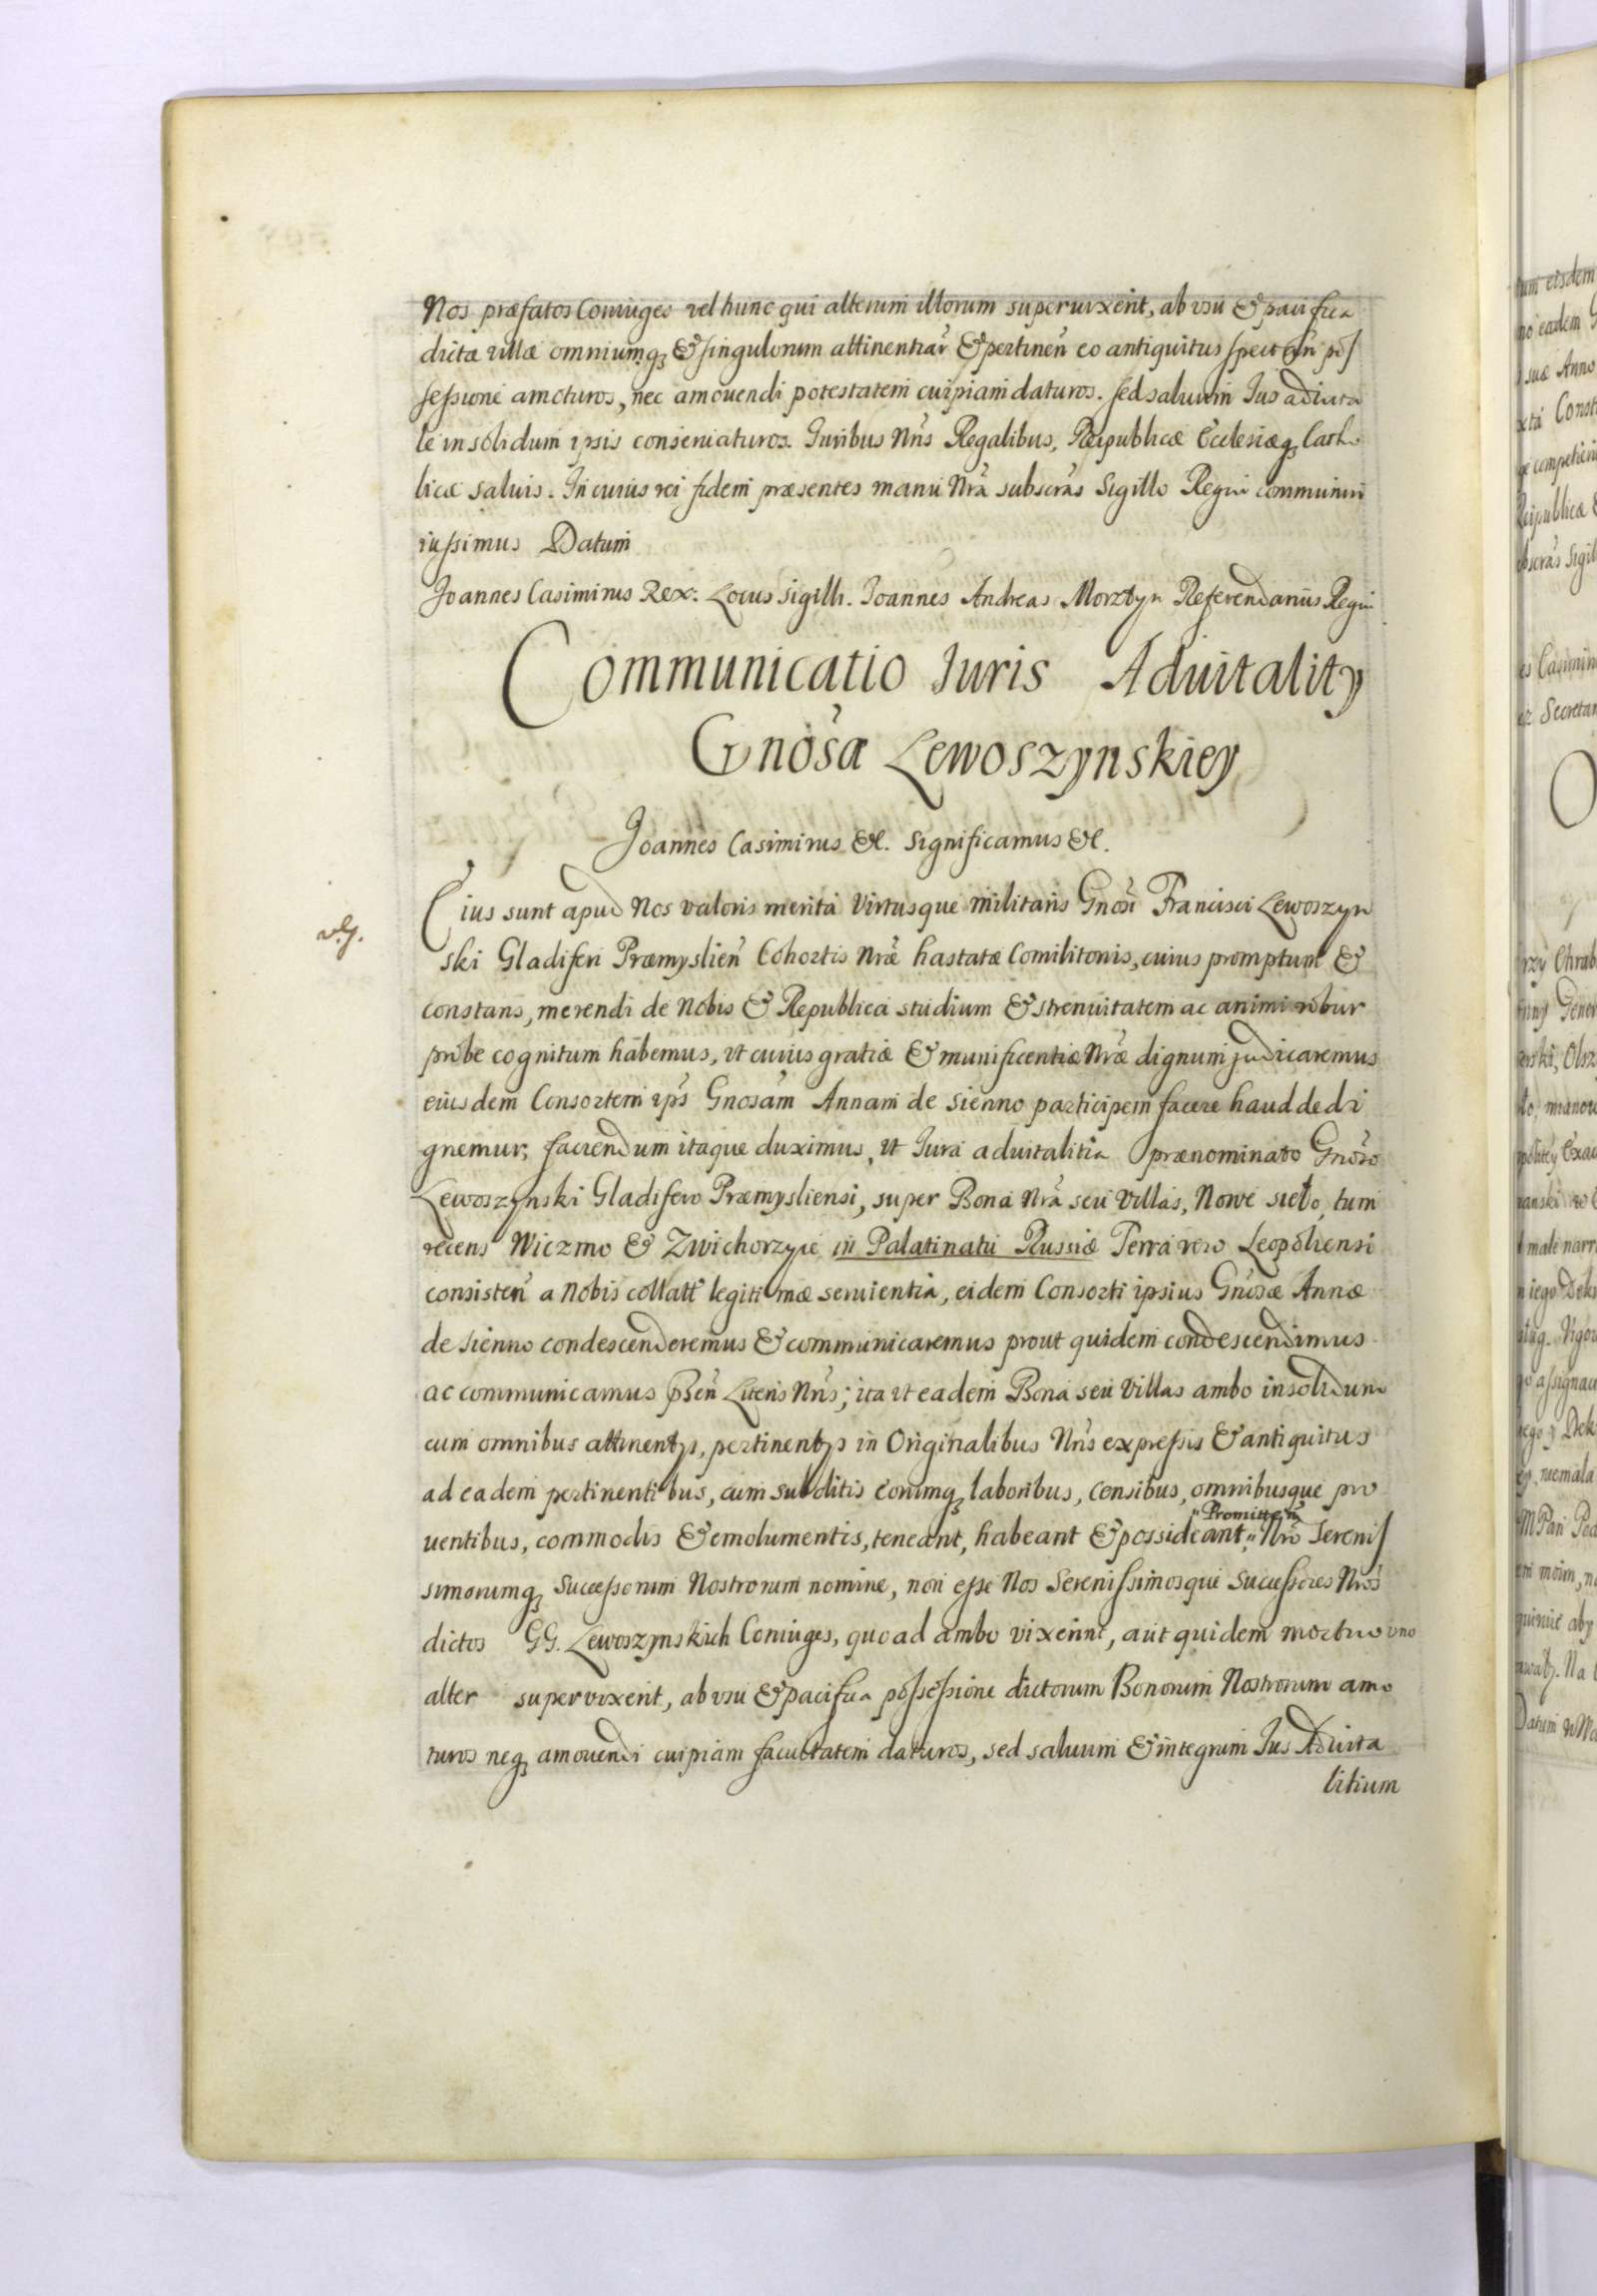 Nos præfatos Coniuges vel hunc qui alterum illorum superuixerit, ab vsu & pacifica
dictæ villæ omniumq; & singulorum attinentiar̃ & pertinen̄ eo antiquitus spectan̄ pos
sessione amoturos, nec amouendi potestatem cuipiam daturos. sed saluum Jus aduita
le in solidum ipsis conseruaturos. Juribus Nr̃is Regalibus, Reipublicæ Ecclesiæq; Catho
licæ saluis. In cuius rei fidem præsentes manu Nr̃a subscr̃as Sigillo Regni communiri
iussimus Datum
Joannes Casimirus Rex. Locus Sigilli. Joannes Andreas Morztyn Referendarius Regni
Communicatio Iuris Aduitality
Gnõsæ Lewoszynskiey
Joannes Casimirus &c. Significamus &c.
Eius sunt apud Nos valoris merita Virtusque militaris Gnõsi Francisci Lewoszyn
ski Gladiferi Præmyslien̄ Cohortis Nr̃æ hastatæ Comilitonis, cuius promptum &
constans, merendi de Nobis & Republica studium & strenuitatem ac animi robur
probe cognitum habemus, vt cuius gratiæ & munificentiæ Nr̃æ dignum judicaremus
eiusdem Consortem ips̃ Gnosam̃ Annam de Sienno participem facere haud dedi
gnemur; faciendum itaque duximus, vt Jura aduitalitia prænominato Gnõso
Lewoszynski Gladifero Præmysliensi, super Bona Nr̃a seu Villas, Nowe sieło, tum
recens Wiczmo & Zwichorzyie in Palatinatu Russiæ Terra vero Leopoliensi
consisten̄ a Nobis collatt̃ legitimæ seruientia, eidem Consorti ipsius Gnõsæ Annæ
de Sienno condescenderemus & communicaremus prout quidem condescendimus
ac communicamus p̃sen̄ Literis Nr̃is; ita vt eadem Bona seu Villas ambo in solidum
cum omnibus attinentys, pertinentys in Originalibus Nr̃is expressis & antiquitus
ad eadem pertinentibus, cum subditis eorumq; laboribus, censibus, omnibusque pro
uentibus, commodis & emolumentis, teneant, habeant & possideant. "Promitten̄" Nr̃o Serenis
simorumq; Successorum Nostrorum nomine, non esse Nos Serenissimosque Successores Nr̃os
dictos GG. Lewoszynskich Coniuges, quoad ambo vixerint, aut quidem mortuo vno
alter superuixerit, ab vsu & pacifica possessione dictorum Bonorum Nostrorum amo
turos neq; amouendi cuipiam facultatem daturos, sed saluum & integrum Jus Aduita
litium